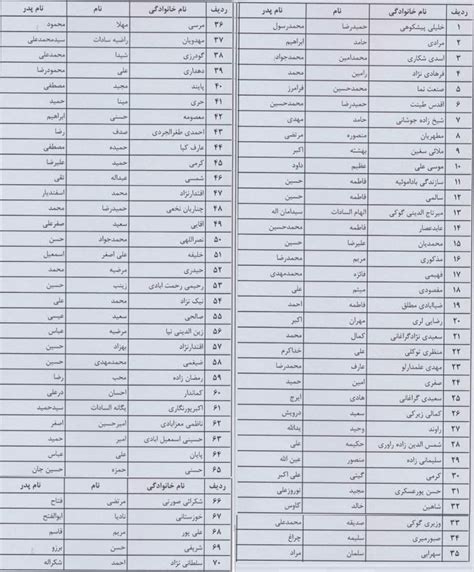 ردیف نام خانوادگی نام نام پدر
۱ خلیلی پیشکوهی حمیدرضا محمدرسول
۲ مرادی حامد ابراهیم
۳ اسدی شکاری محمدامین محمدجواد
۴ فرهادی نژاد رامین محمد
۵ صنعت نما محمدحسین فرامرز
۶ اقدس طینت حمیدرضا محمدحسین
۷ شیخ زاده جوشانی حامد مهدی
۸ مطهریان منصوره مرتضی
۹ ملائی سفین بهشته اکبر
۱۰ موسی علی عظیم داود
۱۱ سازندگی باداموئیه فاطمه حسین
۱۲ سالمی فاطمه حسین
۱۳ میرتاج الدینی گوکی الهام السادات سیدامان اله
۱۴ عابدعصار فاطمه محمدحسین
۱۵ محمدیان علیرضا حسین
۱۶ مذکوری مریم محمدرضا
۱۷ فهیمی فائزه محمدمهدی
۱۸ مقصودی میثم علی
۱۹ ضیاابادی مطلق فاطمه احمد
۲۰ رضایی لری مهران اکبر
۲۱ سعیدی نژادگراغانی کمال محمد
۲۲ منتظری توکلی علی خداکرم
۲۳ مهدی علمدارلو عارف محمدرضا
۲۴ صفری امین حمید
۲۵ سعیدی گراغانی هادی ایرج
۲۶ کمالی زیرکی سعید درویش
۲۷ راوند وحید یداله
۲۸ شمس الدین زاده راوری حکیمه علی
۲۹ سلیمانی زاده منصور عین الله
۳۰ کرمی گیتی علی اکبر
۳۱ حسن پورعسکری مجید نوروزعلی
۳۲ شاهین خالد کاوس
۳۳ وزیری گوکی صدیقه محمدعلی
۳۴ صبورمیری سلیمه چراغ
۳۵ سهرابی سلمان مراد
ردیف نام خانوادگی نام نام پدر
۳۶ مرسی مهلا محمود
۳۷ مهدویان راضیه سادات سیدمحمدعلی
۳۸ گودرزی شیدا محمدعلی
۳۹ دهداری علی محمودرضا
۴۰ پایند مجید مصطفی
۴۱ حری مینا حمید
۴۲ معصومه حسنی ابراهیم
۴۳ احمدی طغرالجردی صدف رضا
۴۴ عارف کیا حمیده مصطفی
۴۵ کرمی حمید علیرضا
۴۶ شمسی عبداله تقی
۴۷ اقتدارنژاد محمد اسفندیار
۴۸ چناریان نخعی حمیدرضا محمد
۴۹ آقایی سعید صفرعلی
۵۰ نصراللهی محمدجواد حسن
۵۱ خلیفه علی اصغر اسمعیل
۵۲ حیدری مرضیه محمد
۵۳ رحیمی رحمت ابادی زینب حسین
۵۴ نیک نژاد محمد علی
۵۵ صالحی سعید عیسی
۵۶ زین الدینی نیا مرضیه عباس
۵۷ اقتدارنژاد بهزاد حسین
۵۸ ضیغمی محمدمهدی حسین
۵۹ رمضان زاده محب رضا
۶۰ کماندار احسان درعلی
۶۱ اکبرپورنگاری یگانه السادات سیدحمید
۶۲ ناظمی معزابادی امیرحسین اصغر
۶۳ حسینی اسمعیل ابادی امیرحسین اکبر
۶۴ پایان علی عباس
۶۵ حسنی حمزه حسین جان
ردیف نام خانوادگی نام نام پدر
۶۶ شکرائی صورتی مرتضی فتاح
۶۷ خورستانی نادیا ابوالفتح
۶۸ علی پور مریم قاسم
۶۹ شریفی حسن برزو
۷۰ سلطانی نژاد احمد شکراله